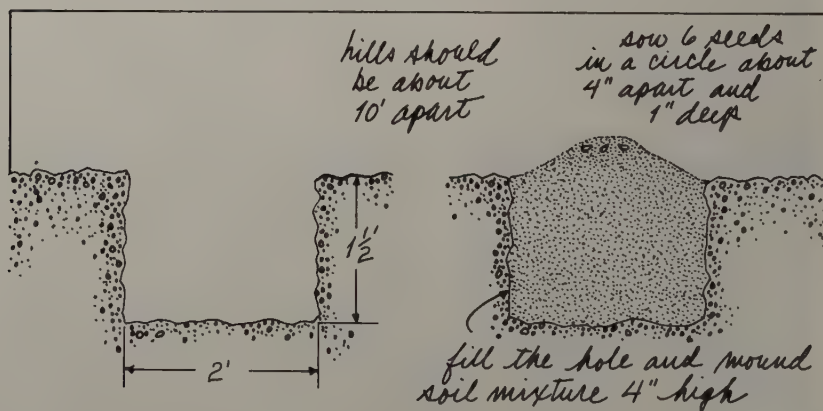 hills should
be about
10' apart
sow 6 seeds
in a circle about
4" apart and
1" deep
1½'
2'
fill the hole and mound
soil mixture 4" high